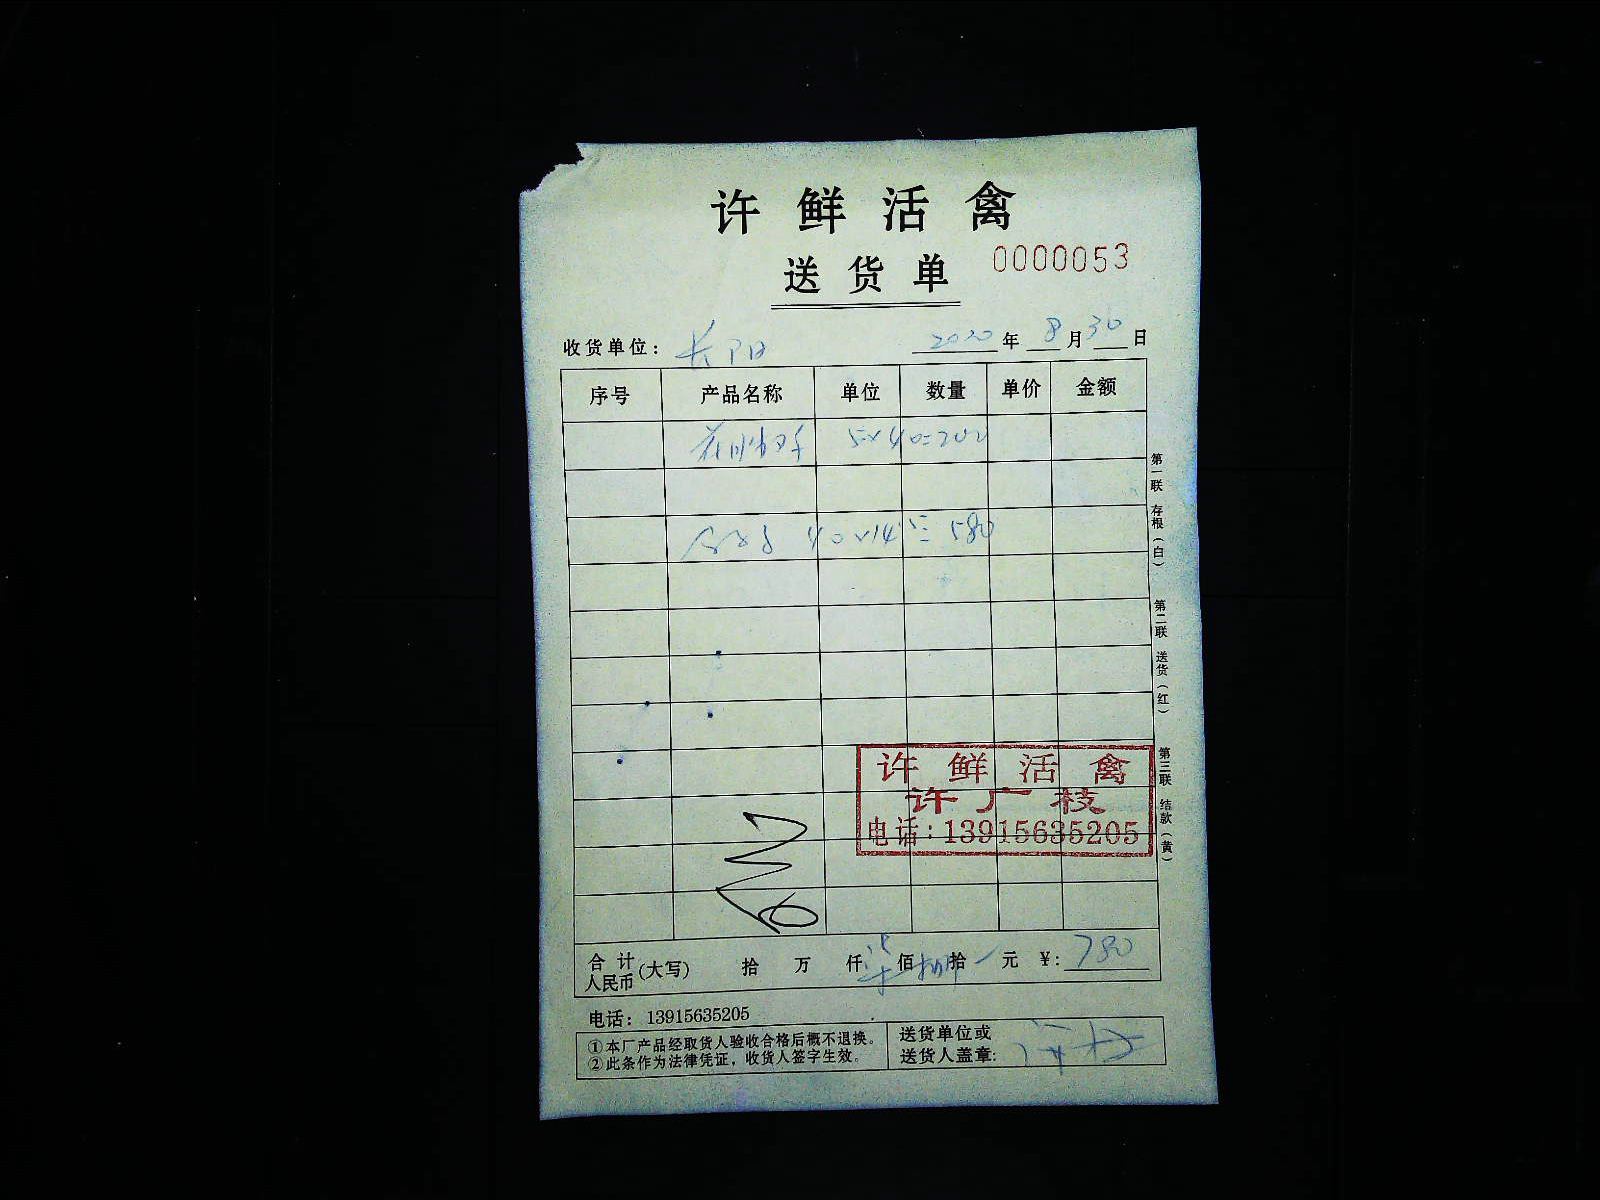 许鲜活禽
送货单 0000053
收货单位: 长阳 2020年8月30日
序号 产品名称 单位 数量 单价 金额
5×40=200
40×14 = 580
第一联 存根(白) 第二联 送货(红) 第三联 结款(黄)
许鲜活禽
许广枝
电话:13915635205
合计人民币(大写) 拾 万 仟 柒 佰 捌 拾 元 ¥: 780
电话: 13915635205
①本厂产品经取货人验收合格后概不退换。
②此条作为法律凭证,收货人签字生效。
送货单位或
送货人盖章: